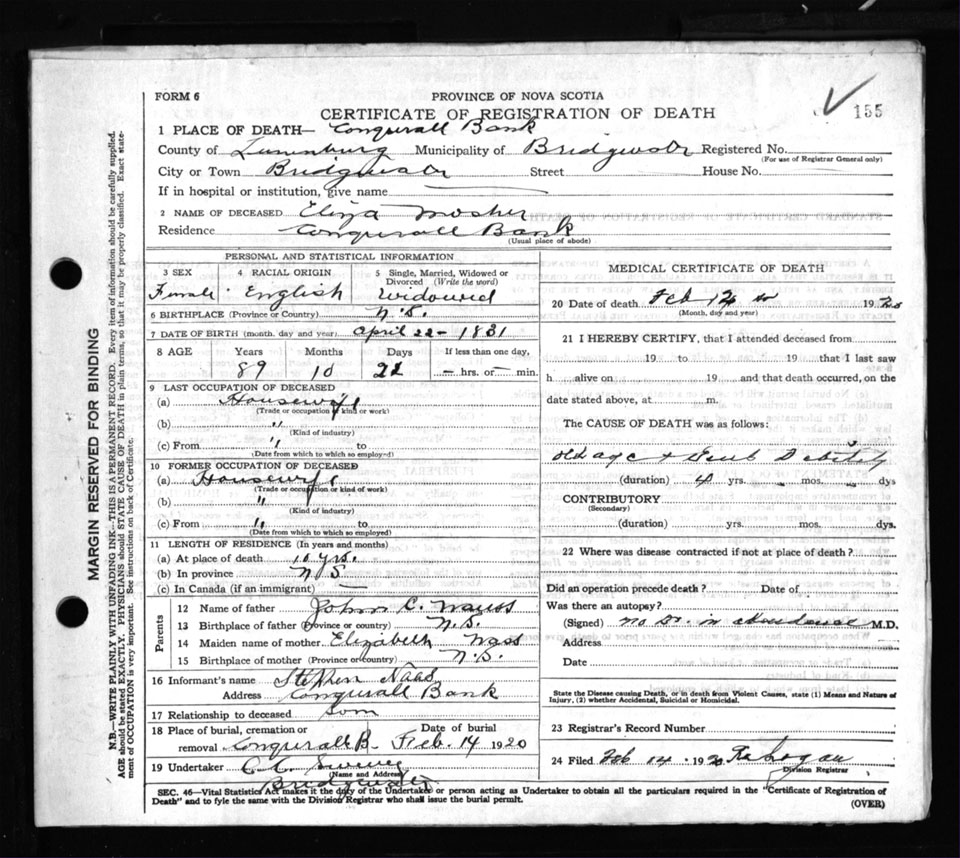 FORM 6
PROVINCE OF NOVA SCOTIA
CERTIFICATE OF REGISTRATION OF DEATH
155
1 PLACE OF DEATH— Conqurall Bank
County of Lunenburg Municipality of Bridgewater Registered No.
(For use of Registrar General only)
City or Town Bridgewater Street House No.
If in hospital or institution, give name
2 NAME OF DECEASED Eliza Mosher
Residence Conqurall Bank
(Usual place of abode)
PERSONAL AND STATISTICAL INFORMATION
3 SEX 4 RACIAL ORIGIN 5 Single, Married, Widowed or Divorced (Write the word)
Female English Widowed
6 BIRTHPLACE (Province or Country) N.S.
7 DATE OF BIRTH (month, day and year) April 22 - 1831
8 AGE Years Months Days If less than one day,
89 10 22 — hrs. or — min.
9 LAST OCCUPATION OF DECEASED
(a) Housewife
(Trade or occupation or kind of work)
(b) "
(Kind of industry)
(c) From " to
(Date from which to which so employed)
10 FORMER OCCUPATION OF DECEASED
(a) Housewife
(Trade or occupation or kind of work)
(b) "
(Kind of industry)
(c) From " to
(Date from which to which so employed)
11 LENGTH OF RESIDENCE (In years and months)
(a) At place of death 10 yrs.
(b) In province N S
(c) In Canada (if an immigrant) —
Parents
12 Name of father John C.
13 Birthplace of father (Province or country) N.S.
14 Maiden name of mother Elizabeth
15 Birthplace of mother (Province or country) N.S.
16 Informant's name Stephen Naas
Address Conqurall Bank
17 Relationship to deceased Son
18 Place of burial, cremation or removal Conqurall B. Date of burial Feb. 14 1920
19 Undertaker C.C.
(Name and Address)
Bridgewater
MEDICAL CERTIFICATE OF DEATH
20 Date of death Feb 12 1920
(Month, day and year)
21 I HEREBY CERTIFY, that I attended deceased from
19 to 19 that I last saw
h alive on 19 and that death occurred, on the
date stated above, at m.
The CAUSE OF DEATH was as follows:
old age + Debility
(duration) yrs. mos. dys
CONTRIBUTORY
(Secondary)
(duration) yrs. mos. dys.
22 Where was disease contracted if not at place of death?
Did an operation precede death? Date of
Was there an autopsy?
(Signed) no Dr. in attendance M.D.
Address
Date
State the Disease causing Death, or in death from Violent Causes, state (1) Means and Nature of
Injury, (2) whether Accidental, Suicidal or Homicidal.
23 Registrar's Record Number
24 Filed Feb 14 1920
Division Registrar
SEC. 46—Vital Statistics Act makes it the duty of the Undertaker or person acting as Undertaker to obtain all the particulars required in the "Certificate of Registration of
Death" and to fyle the same with the Division Registrar who shall issue the burial permit.
(OVER)
MARGIN RESERVED FOR BINDING
N.B.—WRITE PLAINLY WITH UNFADING INK—THIS IS A PERMANENT RECORD. Every item of information should be carefully supplied.
AGE should be stated EXACTLY. PHYSICIANS should STATE CAUSE OF DEATH in plain terms, so that it may be properly classified. Exact statement of OCCUPATION is very important. See instructions on back of Certificate.